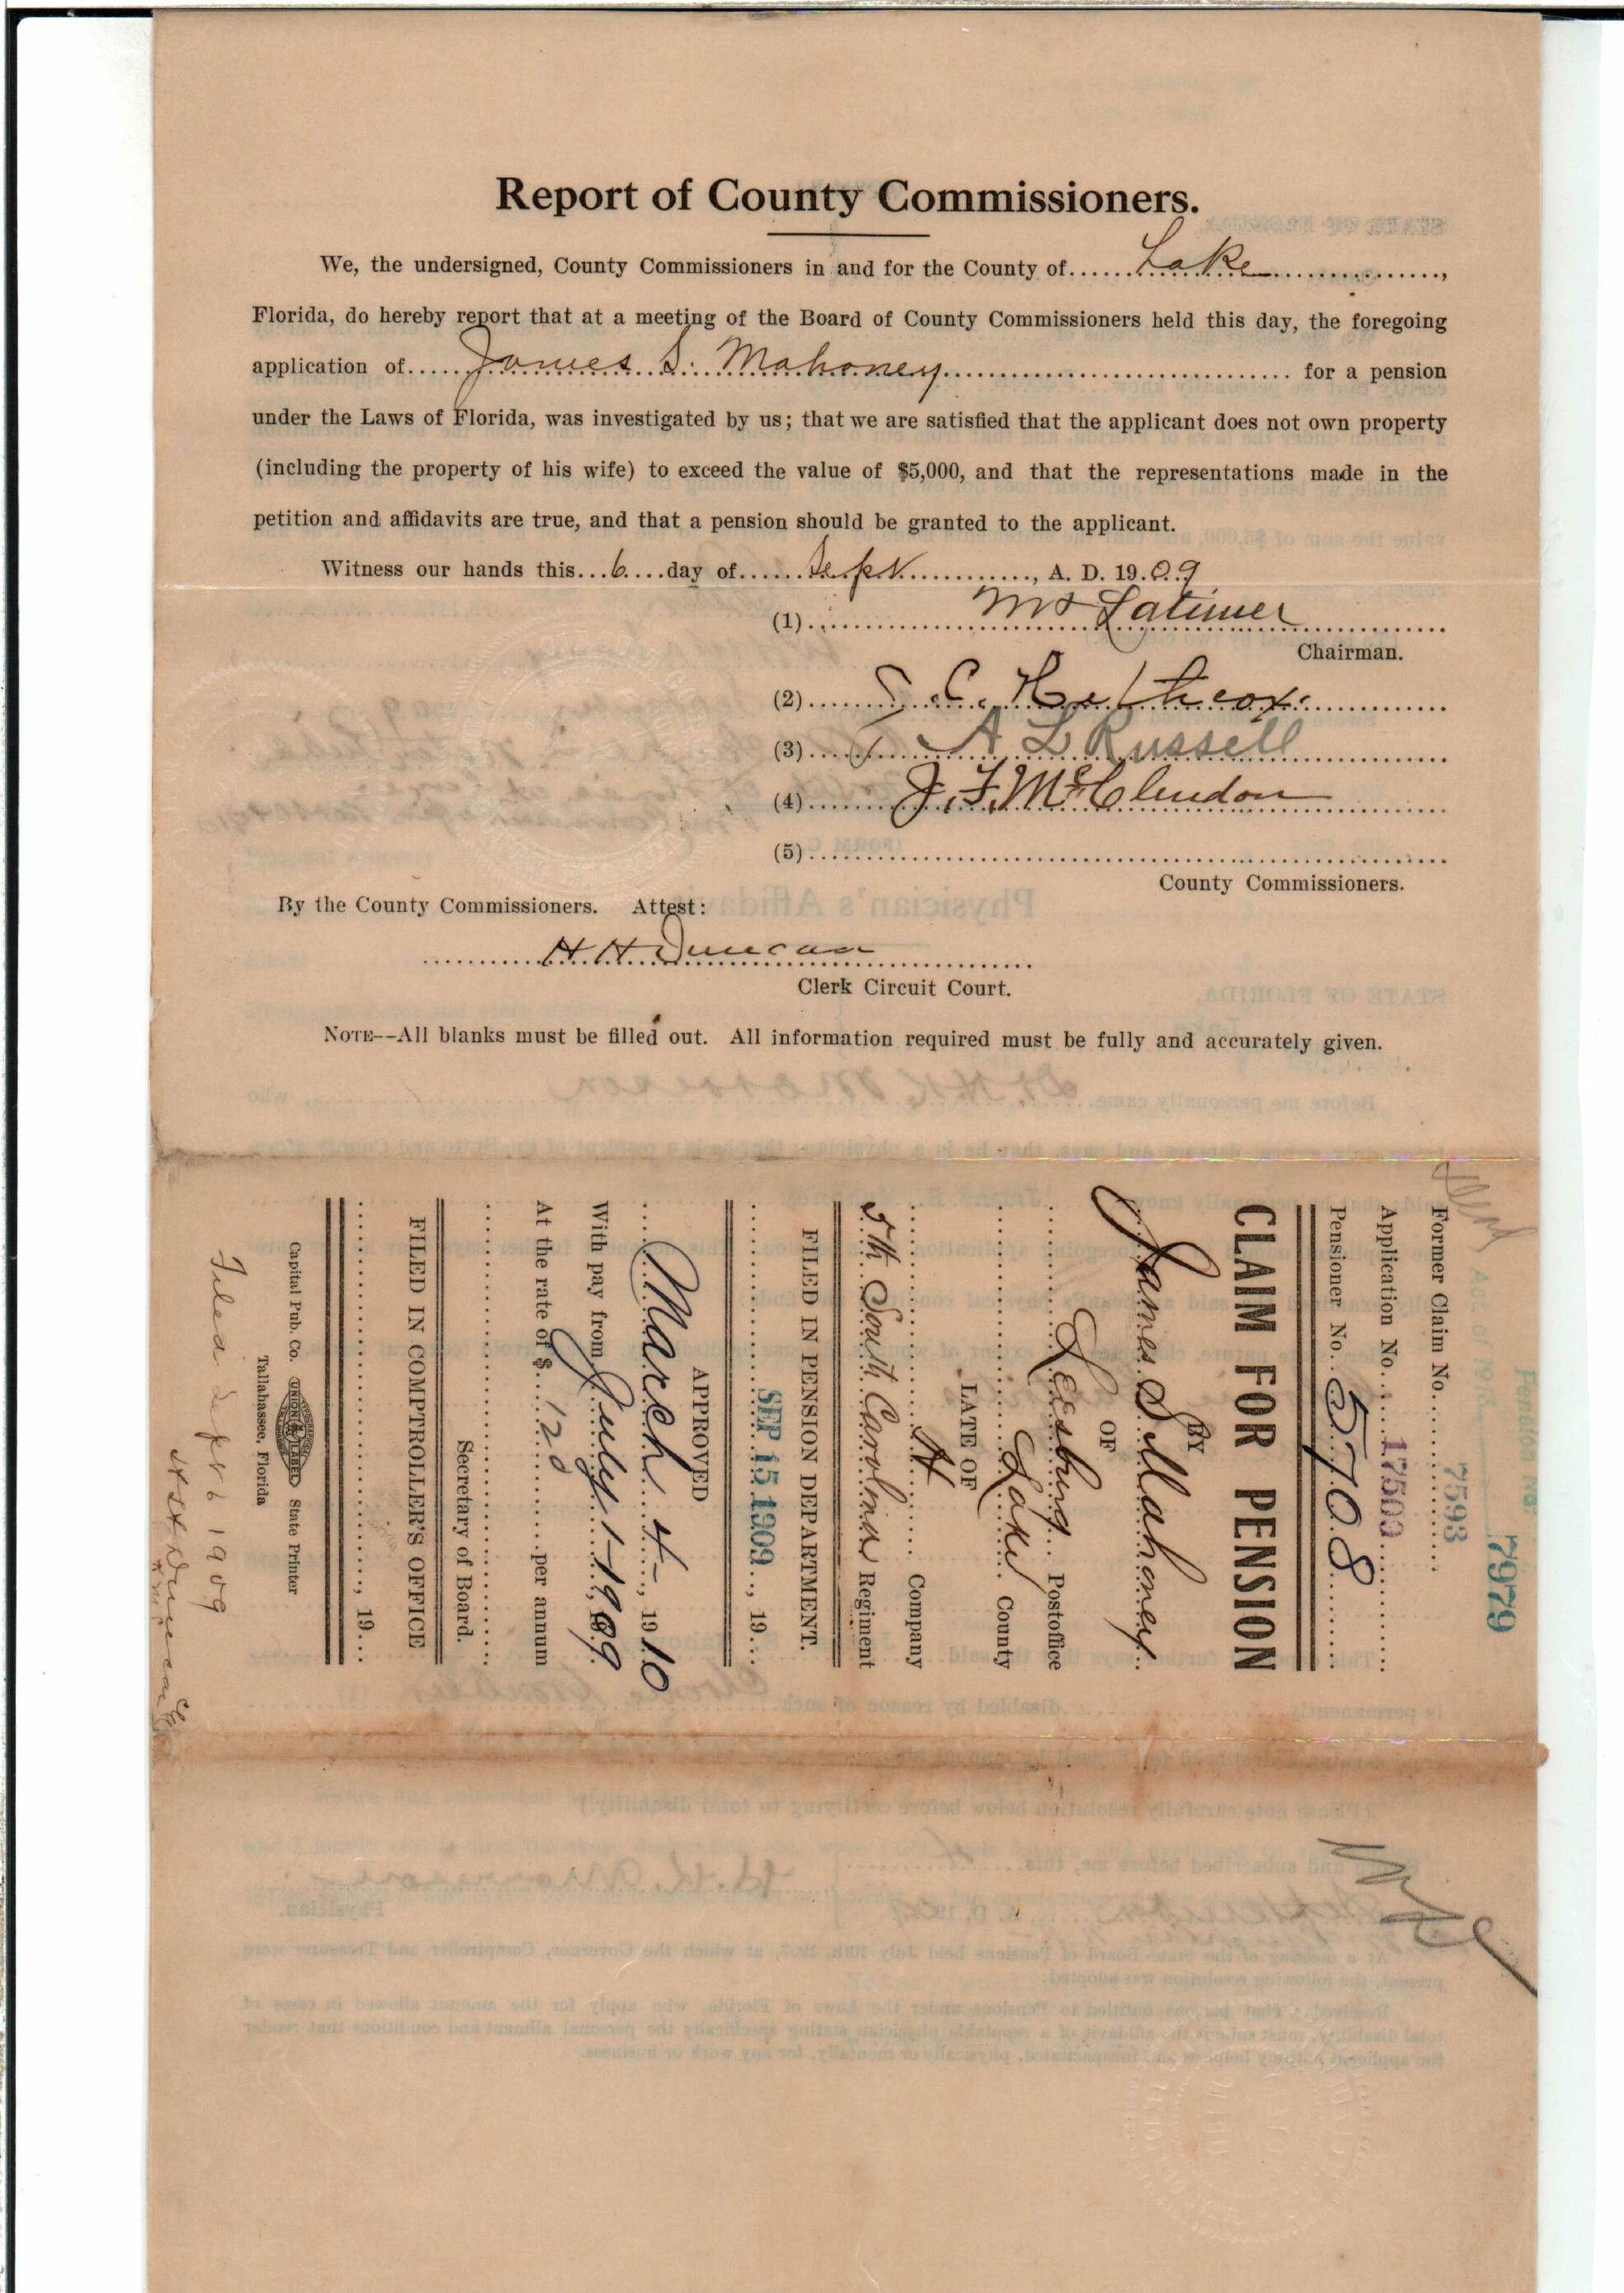 Report of County Commissioners.
We, the undersigned, County Commissioners in and for the County of......Lake..............,
Florida, do hereby report that at a meeting of the Board of County Commissioners held this day, the foregoing
application of......James S. Mahoney.............................. for a pension
under the Laws of Florida, was investigated by us; that we are satisfied that the applicant does not own property
(including the property of his wife) to exceed the value of $5,000, and that the representations made in the
petition and affidavits are true, and that a pension should be granted to the applicant.
Witness our hands this...6....day of......Sept............, A. D. 19.09
(1)............ Latimer............
Chairman.
(2)............
(3)......A L Russell............
(4)........J. F. McClendon............
(5)........................
County Commissioners.
By the County Commissioners. Attest:
............H H Duncan............
Clerk Circuit Court.
NOTE--All blanks must be filled out. All information required must be fully and accurately given.
Pension No. 7979
Act of 19
7593
Former Claim No.............
Application No....17509............
Pensioner No..5708........
CLAIM FOR PENSION
BY
James S Mahoney..
OF
........Leesburg... Postoffice
........Lake..... County
LATE OF
........H........ Company
5th South Carolina Regiment
FILED IN PENSION DEPARTMENT.
........SEP 15 1909..., 19...
APPROVED
....March 4-, 1910
With pay from July 1-1909.
At the rate of $...120........per annum
........................
Secretary of Board.
FILED IN COMPTROLLER'S OFFICE
........................, 19...
Capital Pub. Co. UNION LABEL State Printer
Tallahassee, Florida
Filed Sept 6 1909
H H Duncan